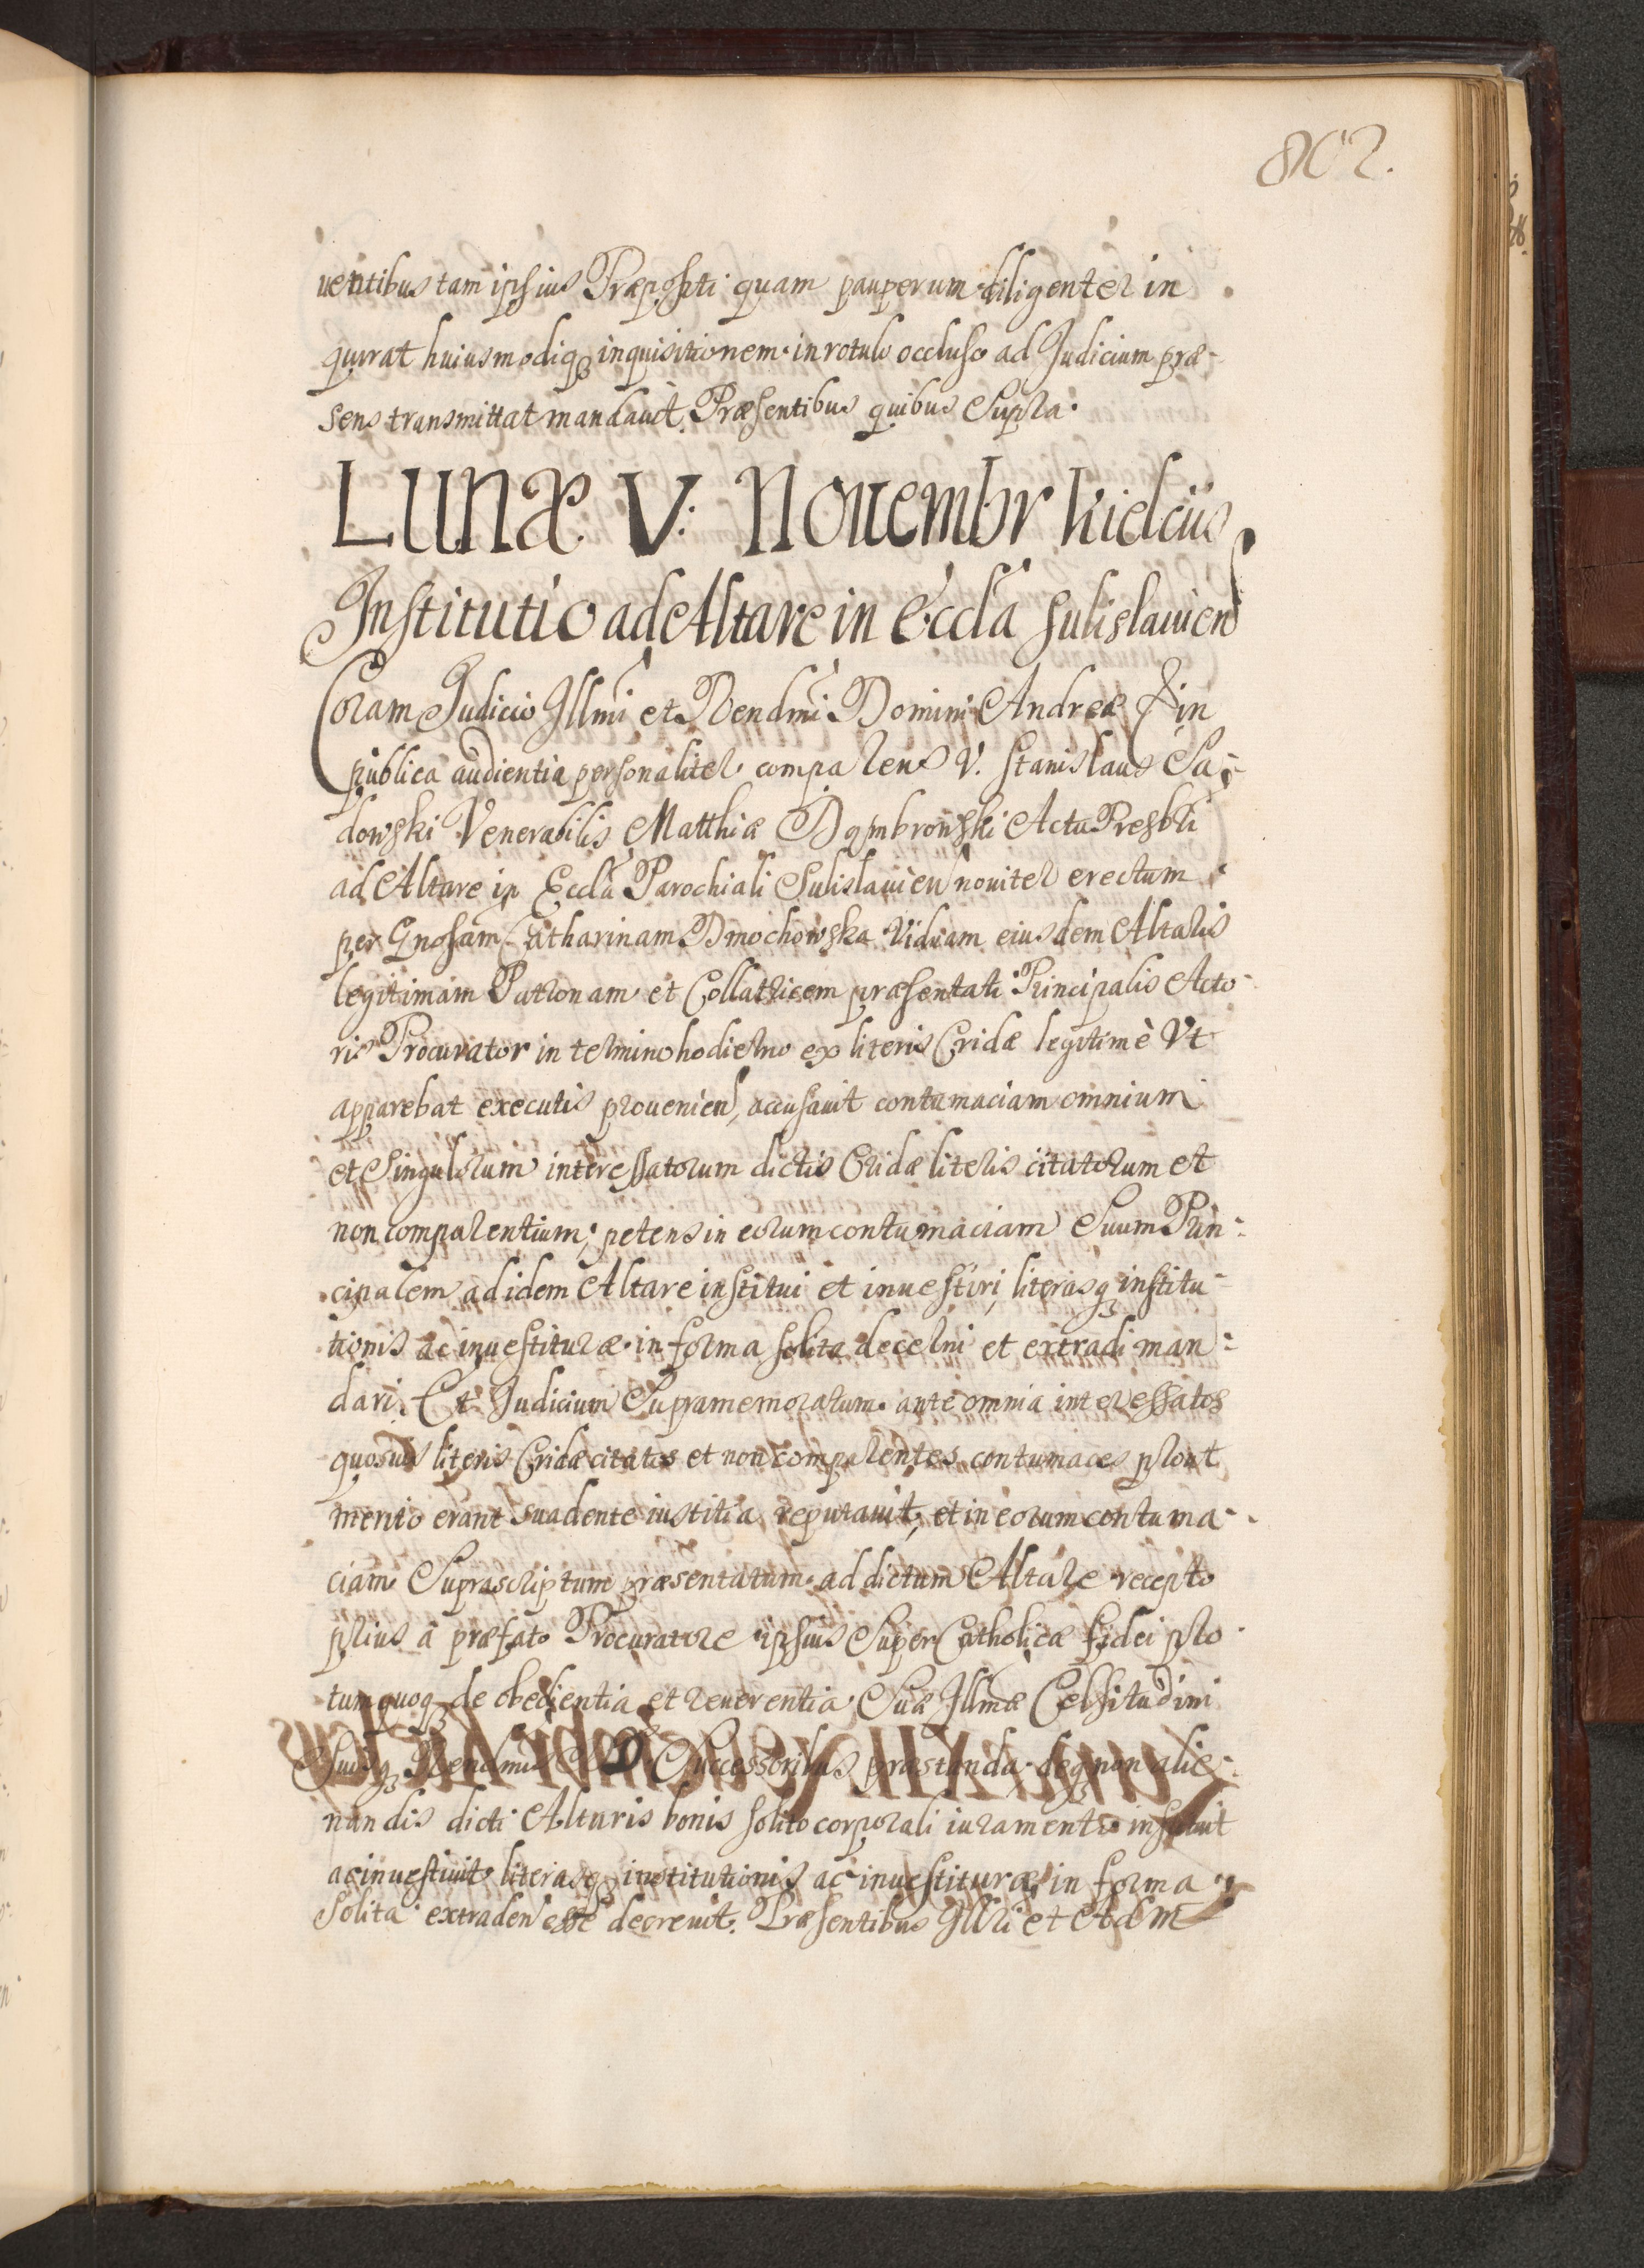 802.
uentibus tam ipsius Præpositi quam pauperum diligenter in
quirat huiusmodiq; inquisitionem in rotulo occluso ad Judicium præ-
sens transmittat mandauit. Præsentibus quibus Supra.
Lunæ V. Nouembr Kielciis
Institutio ad Altare in Eccla Sulislauien
Coram Judicio Illmi et Rendmi Domini Andreæ & in
publica audientia personaliter comparens V. Stanislaus Sa-
dowski Venerabilis Matthiæ Dąmbrowski Actu Presbri
ad Altare in Eccla Parochiali Sulislauien nouiter erectum
per Gnosam Catharinam Dmochowska Viduam eiusdem Altaris
legitimam Patronam et Collatricem præsentati Principalis Acto-
ris Procurator in termino hodierno ex literis Cridæ legitimè Vt
apparebat executis prouenien, accusauit contumaciam omnium
et Singulorum interessatorum dictis Cridæ literis citatorum et
non comparentium; petens in eorum contumaciam Suum Prin-
cipalem ad idem Altare institui et inuestiri, literasq; institu-
tionis ac inuestituræ in forma solita decerni et extradi man-
dari. Et Judicium Supramemoratum ante omnia interessatos
quosuis literis Cridæ citatos et non comparentes contumaces prout
merito erant suadente iustitia reputauit, et in eorum contuma-
ciam Suprascriptum præsentatum ad dictum Altare recepto
prius à præfato Procuratore ipsius Super Catholicæ fidei pro-
tum quoq; de obedientia et reuerentia Suæ Illmæ Celsitudini
Suisq; Rendmis DD. Successoribus præstanda deq; non alie-
nandis dicti Altaris bonis solito corporali iuramento instituit
ac inuestiuit literasq; institutionis ac inuestituræ in forma
Solita extraden esse decreuit. Præsentibus Illri et Adm